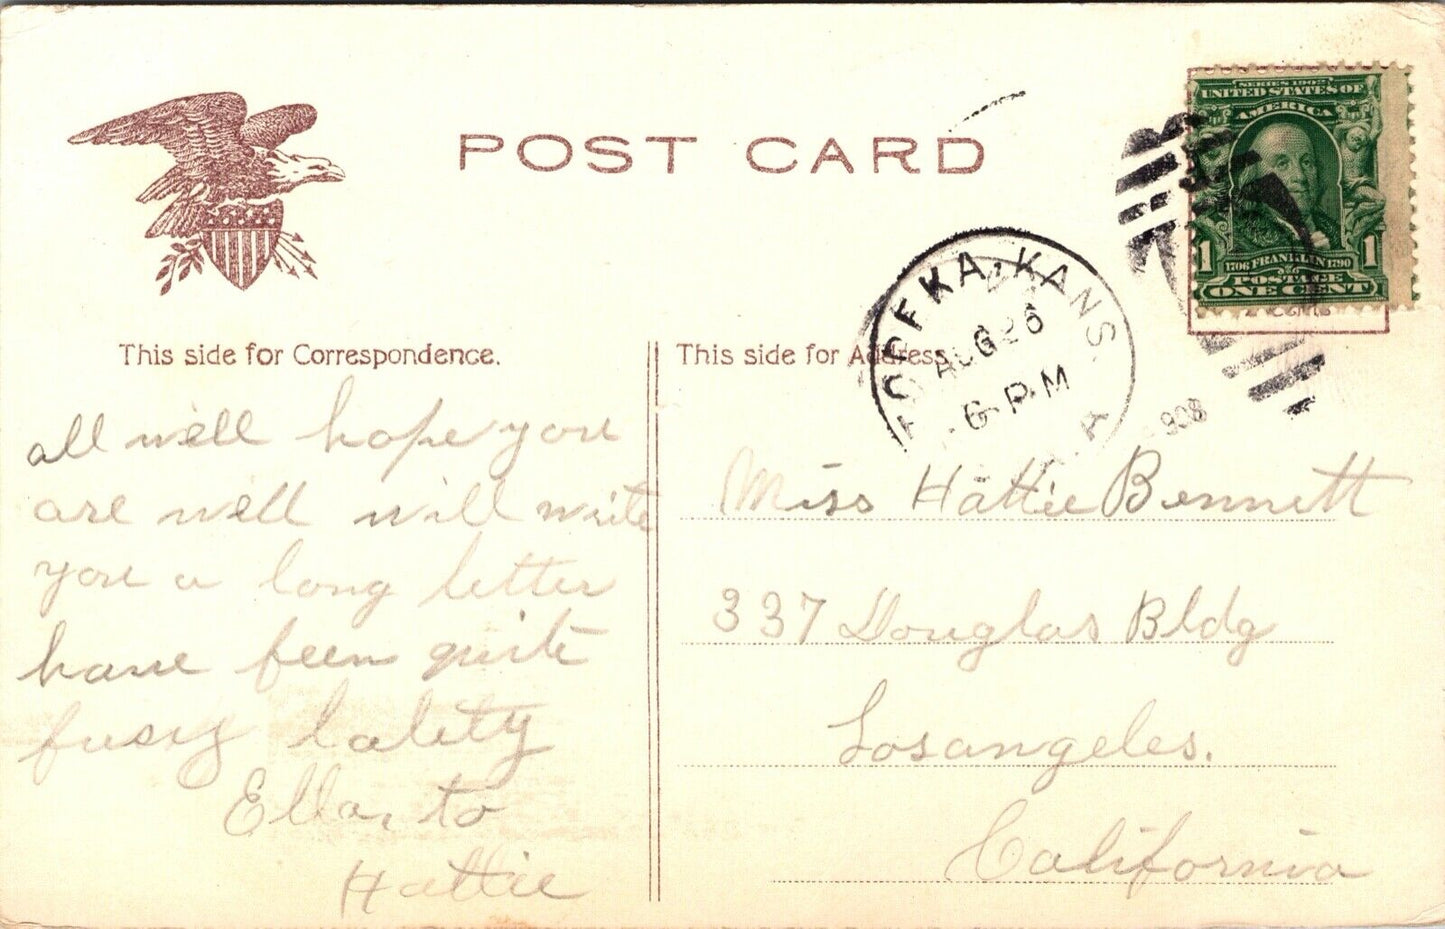 POST CARD
SERIES 1902
UNITED STATES OF
AMERICA
1 1
1706 FRANKLIN 1790
POSTAGE
ONE CENT
TOPEKA, KANS.
AUG 26
6-PM
1908
A
This side for Correspondence.
all well hope you
are well will write
you a long letter
have been quite
fussy lately
Ella, to
Hattie
This side for Address.
Miss Hattie Bennett
337 Douglas Bldg
Losangeles.
California